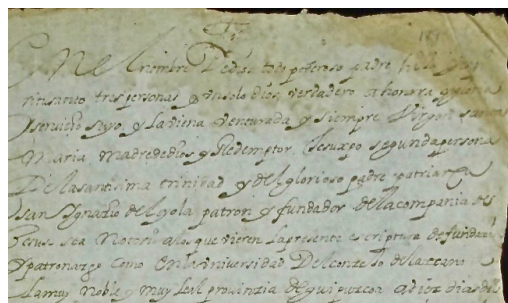 En el nombre De dios todo poderoso padre hijo
ritusanto tres personas y un solo dios verdadero a honrra y gloria
y servicio suyo y La viena venturada y siempre Virgen santa
Maria madre de dios y Redemptor Jesuxpo segunda persona
De la santisima trinidad y del glorioso padre patriarca
san Ygnacio de Loyola patron y fundador de la compania de
Jesus sea notorio a los que vieren la presente escriptura de fundaçi
y patronazgo como En la universidad De
La muy noble y muy Leal provinzia de guipuzcoa a diez dias del